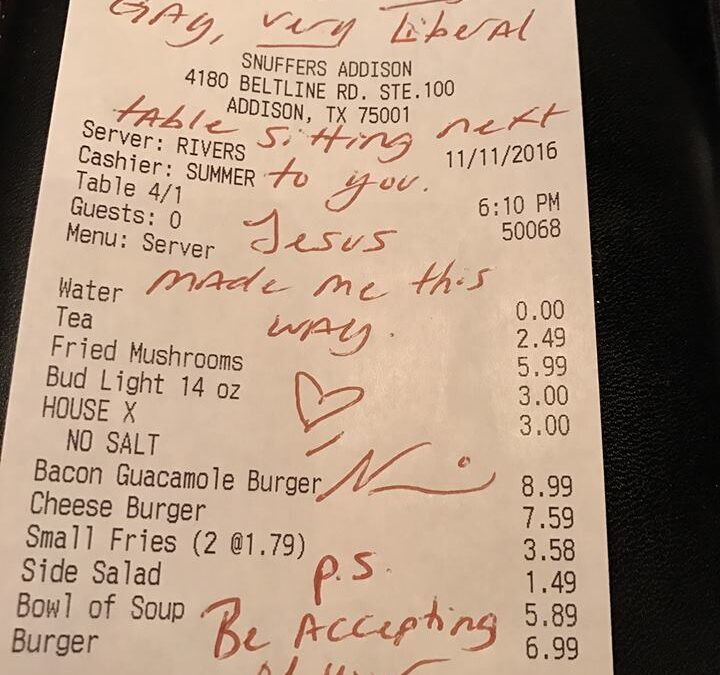 GAy, very Liberal
SNUFFERS ADDISON
4180 BELTLINE RD. STE.100
ADDISON, TX 75001
tABle sitting next
Server: RIVERS 11/11/2016
Cashier: SUMMER
to you.
Table 4/1 6:10 PM
Guests: 0 50068
Jesus
Menu: Server
mAde me this
Water 0.00
Tea 2.49
wAy.
Fried Mushrooms 5.99
Bud Light 14 oz 3.00
HOUSE X 3.00
NO SALT
Bacon Guacamole Burger 8.99
Cheese Burger 7.59
Small Fries (2 @1.79) 3.58
p.s.
Side Salad 1.49
Bowl of Soup 5.89
Be Accepting
Burger 6.99